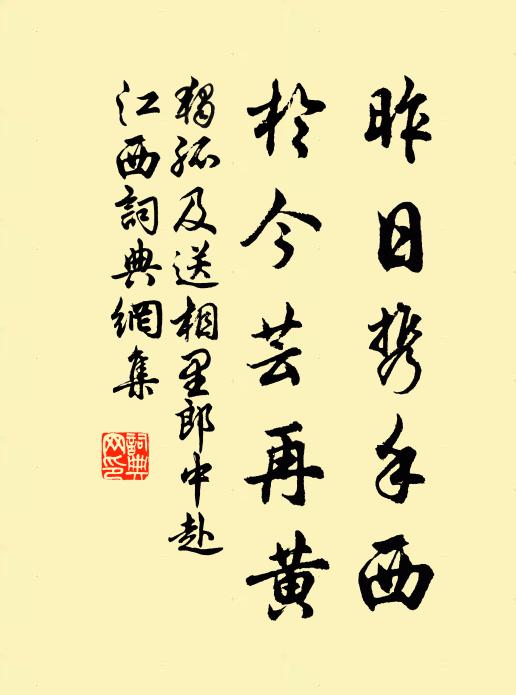 昨日携手西
於今芸再黄
獨孤及送相里郎中赴
江西詞典網集
詞典
网印